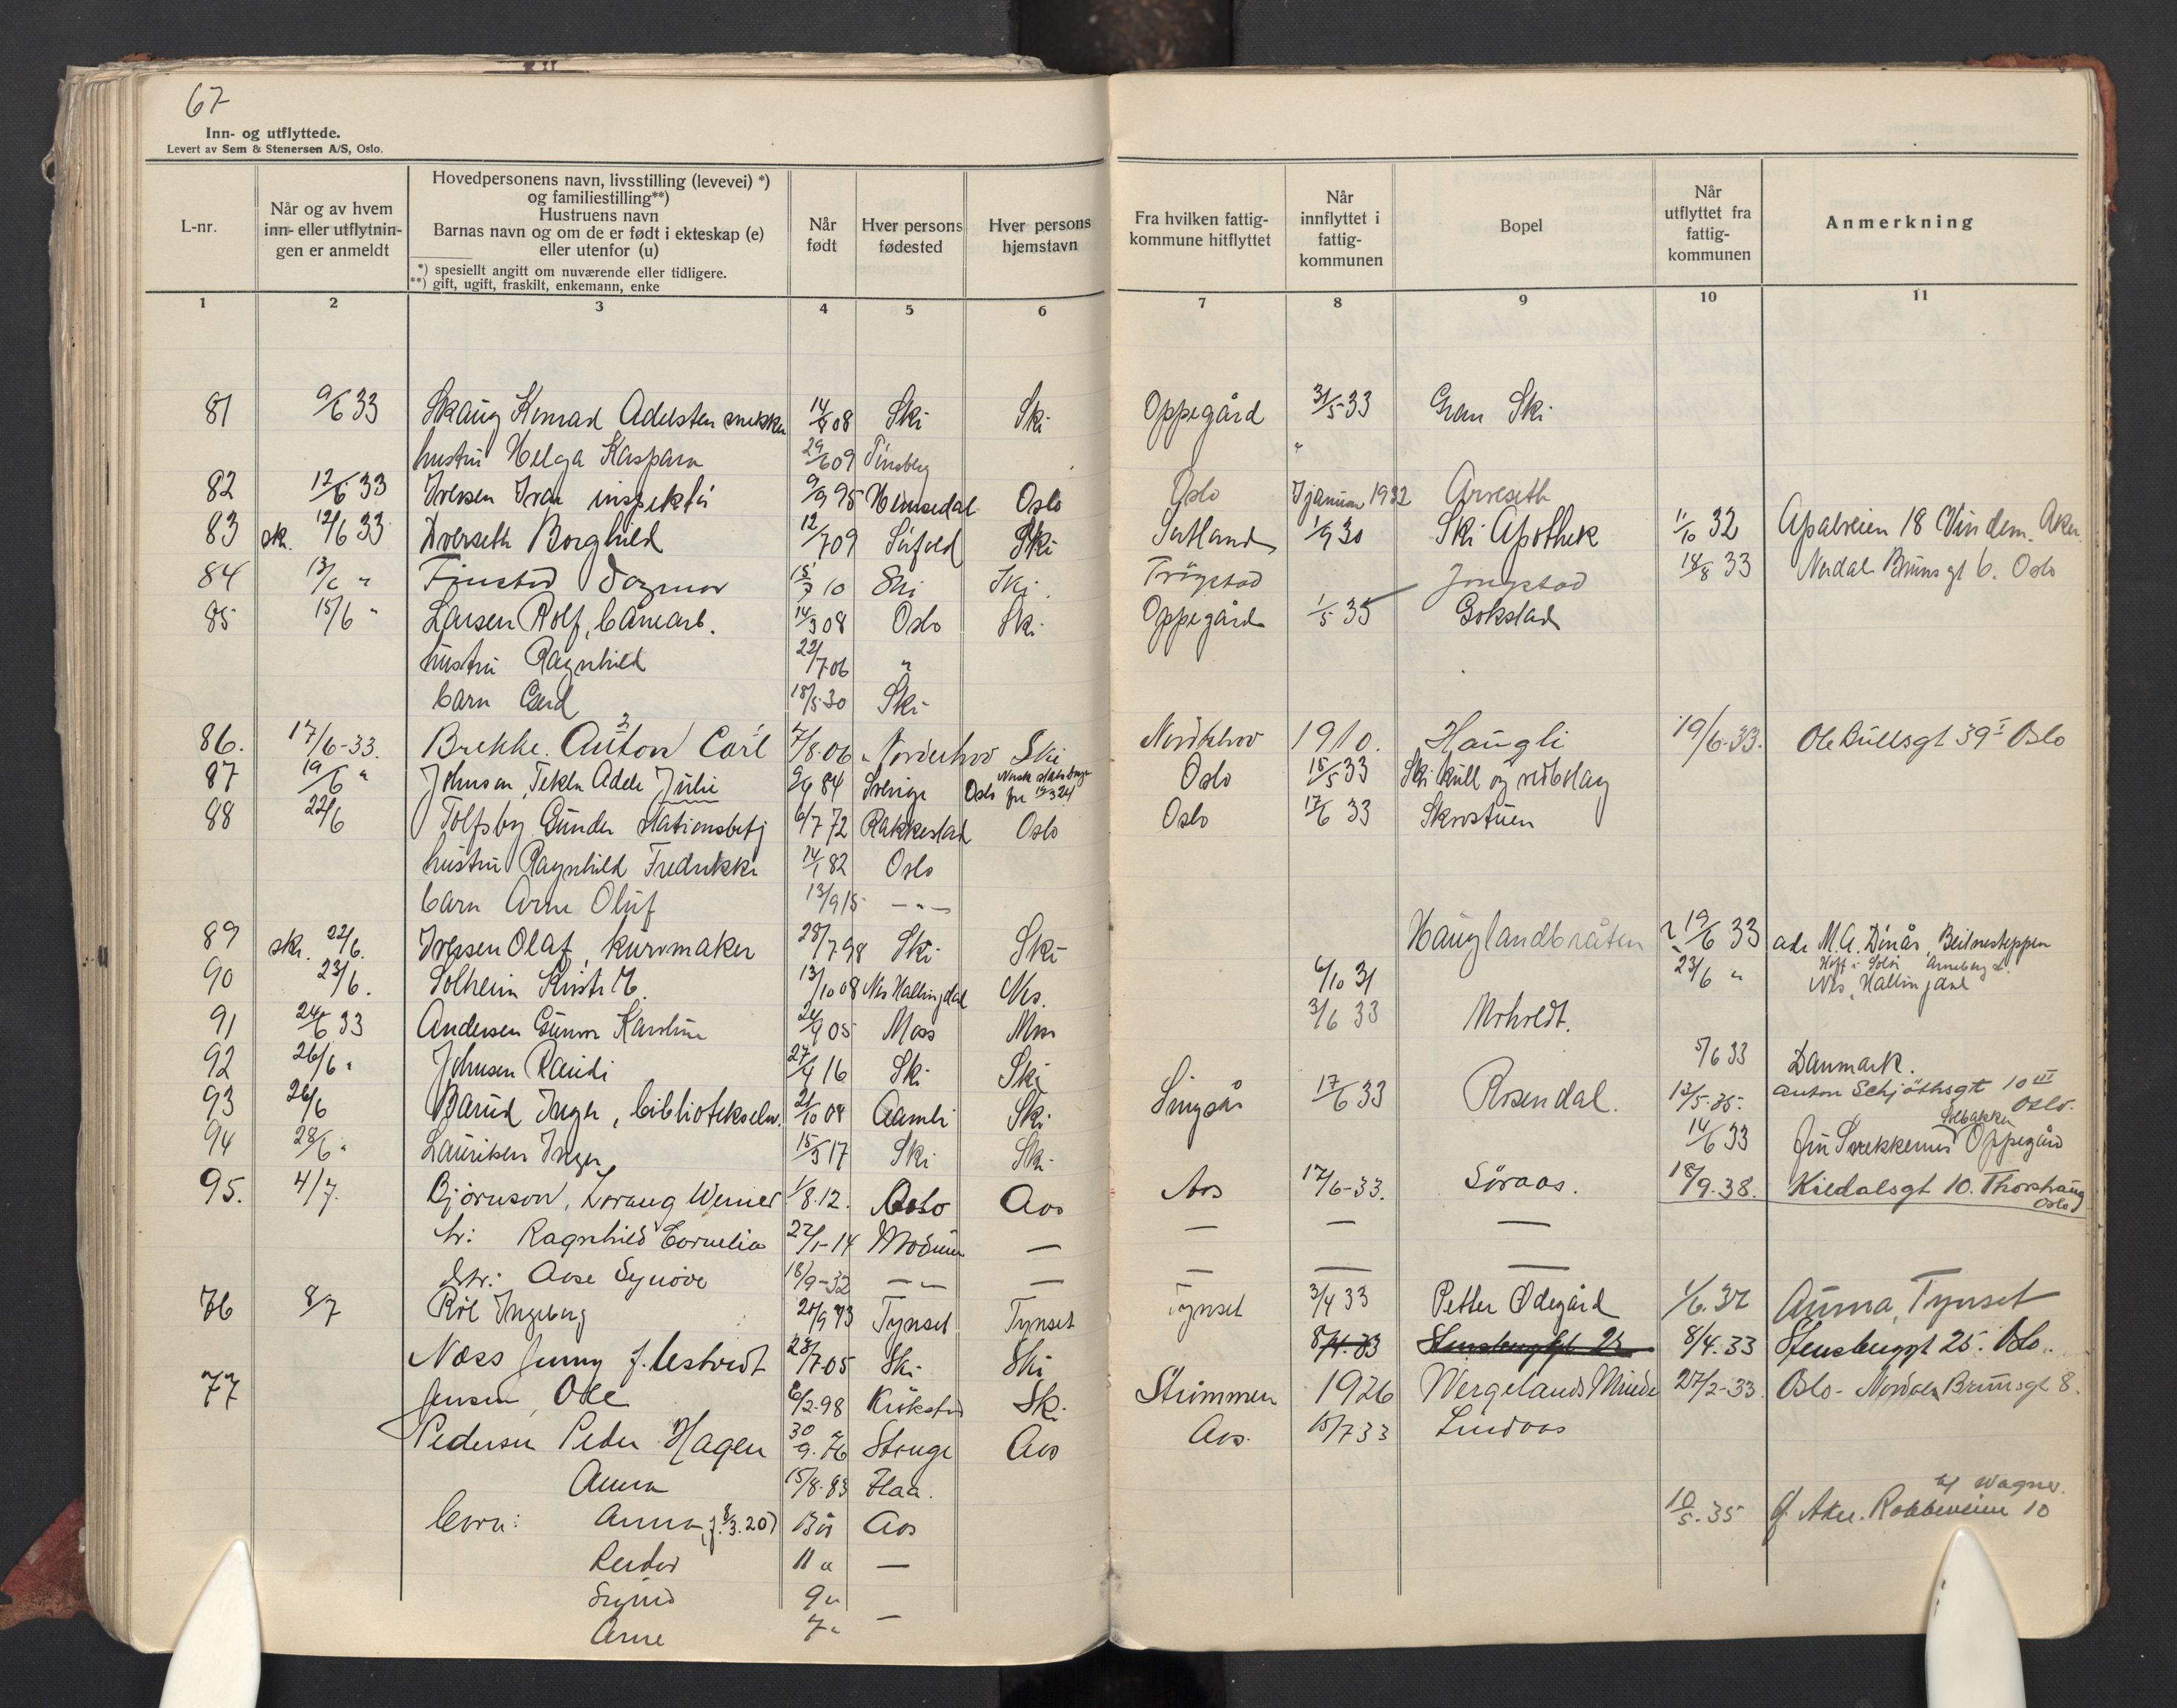 67
Inn- og utflyttede.
Levert av Sem & Stenersen A/S, Oslo.
L-nr.
Når og av hvem
inn- eller utflytnin-
gen er anmeldt
Hovedpersonens navn, livsstilling (levevei) *)
og familiestilling**)
Hustruens navn
Barnas navn og om de er født i ekteskap (e)
eller utenfor (u)
*) spesiellt angitt om nuværende eller tidligere.
**) gift, ugift, fraskilt, enkemann, enke
Når
født
Hver persons
fødested
Hver persons
hjemstavn
Fra hvilken fattig-
kommune hitflyttet
Når
innflyttet i
fattig-
kommunen
Bopel
Når
utflyttet fra
fattig-
kommunen
Anmerkning
1 2 3 4 5 6 7 8 9 10 11
81 9/6 33 Skaug Konrad Adelsten snekker 14/8 08 Ski Ski Oppegård 31/5 33 Gran Ski
hustru Helga Kaspara 29/6 09 Tønsberg "
82 12/6 33 Iversen Ivar inspektør 9/9 95 Hemsedal Oslo Oslo I januar 1932 Arveseth
83 sk. 12/6 33 Dverseth Borghild 12/7 09 Sørfold Ski 1/9 30 Ski Apothek 1/10 32 Apalveien 18 Vindern. Aker.
84 13/6 " Finstad Dagmar 15/7 10 Ski Ski. Trøgstad 14/8 33 Nordal Bruns gt 6. Oslo
85 15/6 " Larsen Rolf, banearb. 14/3 08 Oslo Ski Oppegård 1/5 35 Gokstad
hustru Ragnhild 22/7 06 "
barn Gerd 18/5 30 Ski
86. 17/6-33. Brekke. Anton Carl 7/8-06 Norderhov Ski Norderhov 1910. Haugli 19/6-33. Ole Bullsgt 39 I Oslo
87 19/6 " Johnson, Tekla Adele Julie 9/4 84 Sverige Norsk statsborger Oslo fra 19/3 24 Oslo 15/5 33 Ski kull og vedbolag
88 22/6 Tolfsby Gunder stationsbetj 6/7 72 Rakkestad Oslo Oslo 17/6 33 Skrostuen
hustru Ragnhild Fredrikke 14/1 82 Oslo
barn Arne Oluf 13/9 15 - " -
89 skr. 22/6. Iversen Olaf, kurvmaker 28/7 98 Ski Ski Hauglandbråten 19/6 33 adr M.A. Dinås, Beitnesteppen
Hoff i Solør Arneberg
90 23/6. Solheim Kristi M. 13/10 08 Nes Hallingdal Nes. 6/10 31 23/6 " Nes, Hallingdal
91 24/6 33 Andersen Gunvor Karoline 24/4 05 Moss Moss 3/6 33 Moholdt.
92 26/6 " Johnsen Randi 27/4 16 Ski Ski 5/6 33 Danmark.
93 26/6 Barud Inger, bibliotekselev. 21/10 09 Aamli Ski Singsås 17/6 33 Rosendal. 13/5-35. Anton Schjøthsgt 10 III Oslo.
94 28/6 " Lauritsen Inger 15/5 17 Ski Ski 14/6 33 Solbakken Oppegård
95. 4/7. Bjørnson, Lorang Werner 1/8.12. Oslo Aas Aas 17/6-33. Søraas. 18/9.38. Kildalsgt 10. Thorshaug Oslo
h: Ragnhild Cornelia 27/1-14 Modum — — — —
dtr: Aase Synøve 18/9-32 — — — — —
76 8/7 Røe Ingeborg 20/9 93 Tynset Tynset Tynset 3/4 33 Petter Ødegård 1/6.32 Auma, Tynset
Næss Jenny f. Uestvedt 23/7-05 Ski Ski 8/4.33 Stensberggt 25 8/4.33 Stensberggt 25. Oslo.
77 Jensen, Ole 6/2-98 Kråkstad Ski Strømmen 1926 Wergelands Minde 27/2-33. Oslo - Nordals Brunsgt 8.
Pedersen Peder Hagen 30/9.76 Stange Aas Aas. 15/7 33 Lindaas
Anna 15/8.83 Flaa.
barn: Anna (f. 8/3.20) 13 år Aas 10/5.35 f. Aker. Rabbeveien 10
hj Wagner.
Reidar 11 " —
Sigurd 9 "
Arne 7 " —